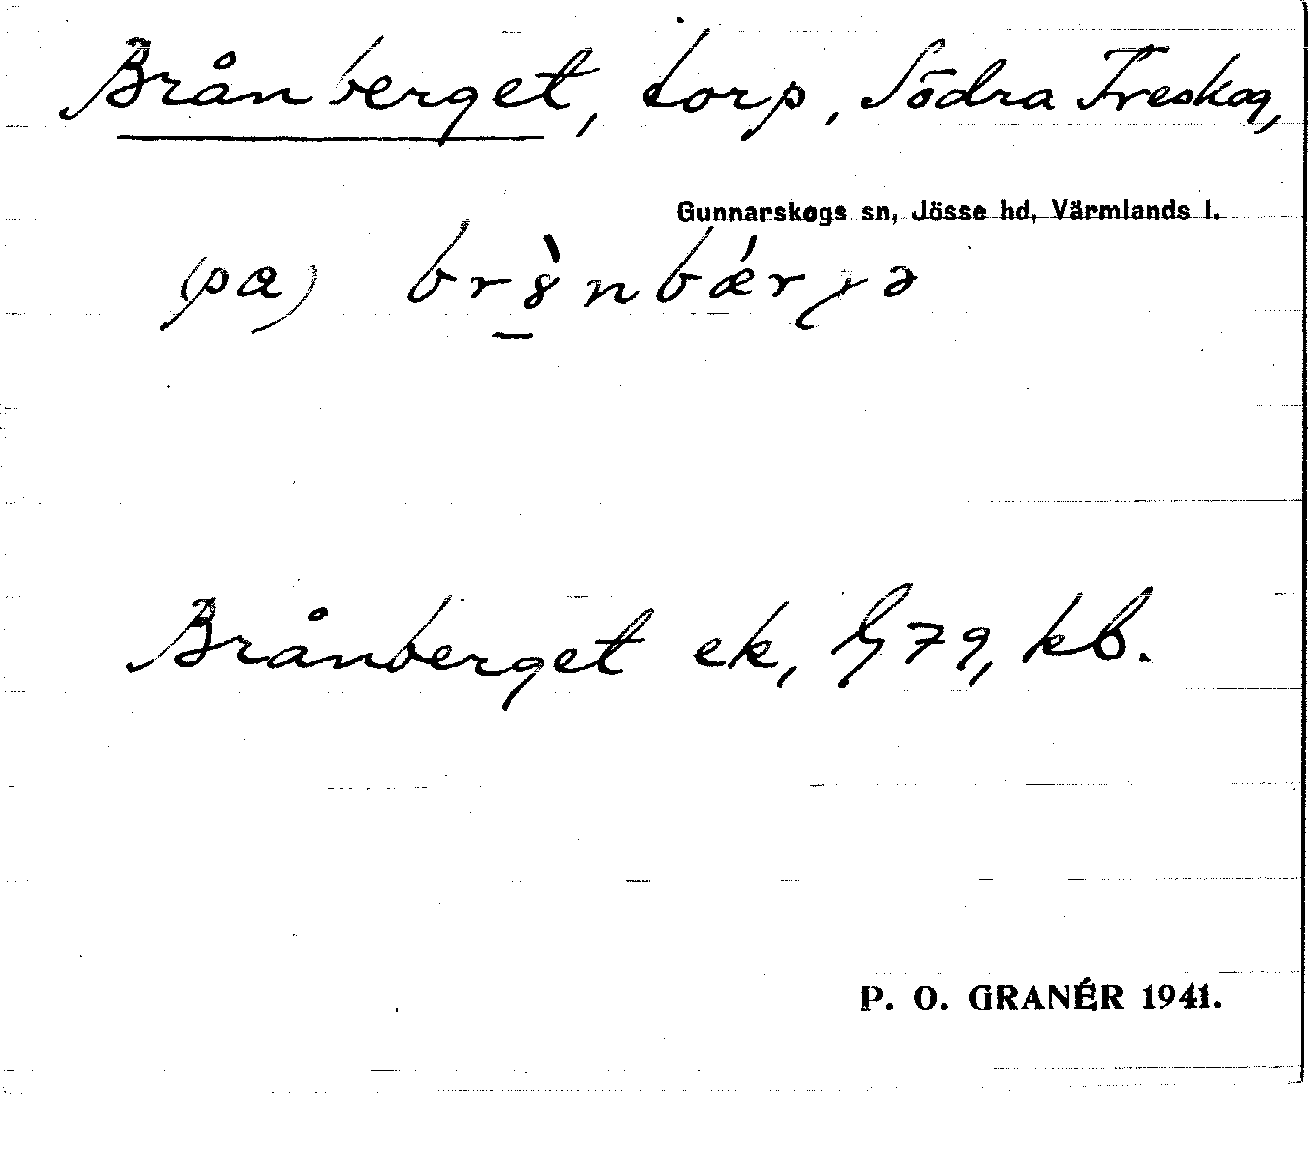 Brånberget, torp, Södra Treskog,
Gunnarskogs sn, Jösse hd, Värmlands l.
(pa)
Brånberget ek, G 79, kb.
P. O. GRANÉR 1941.